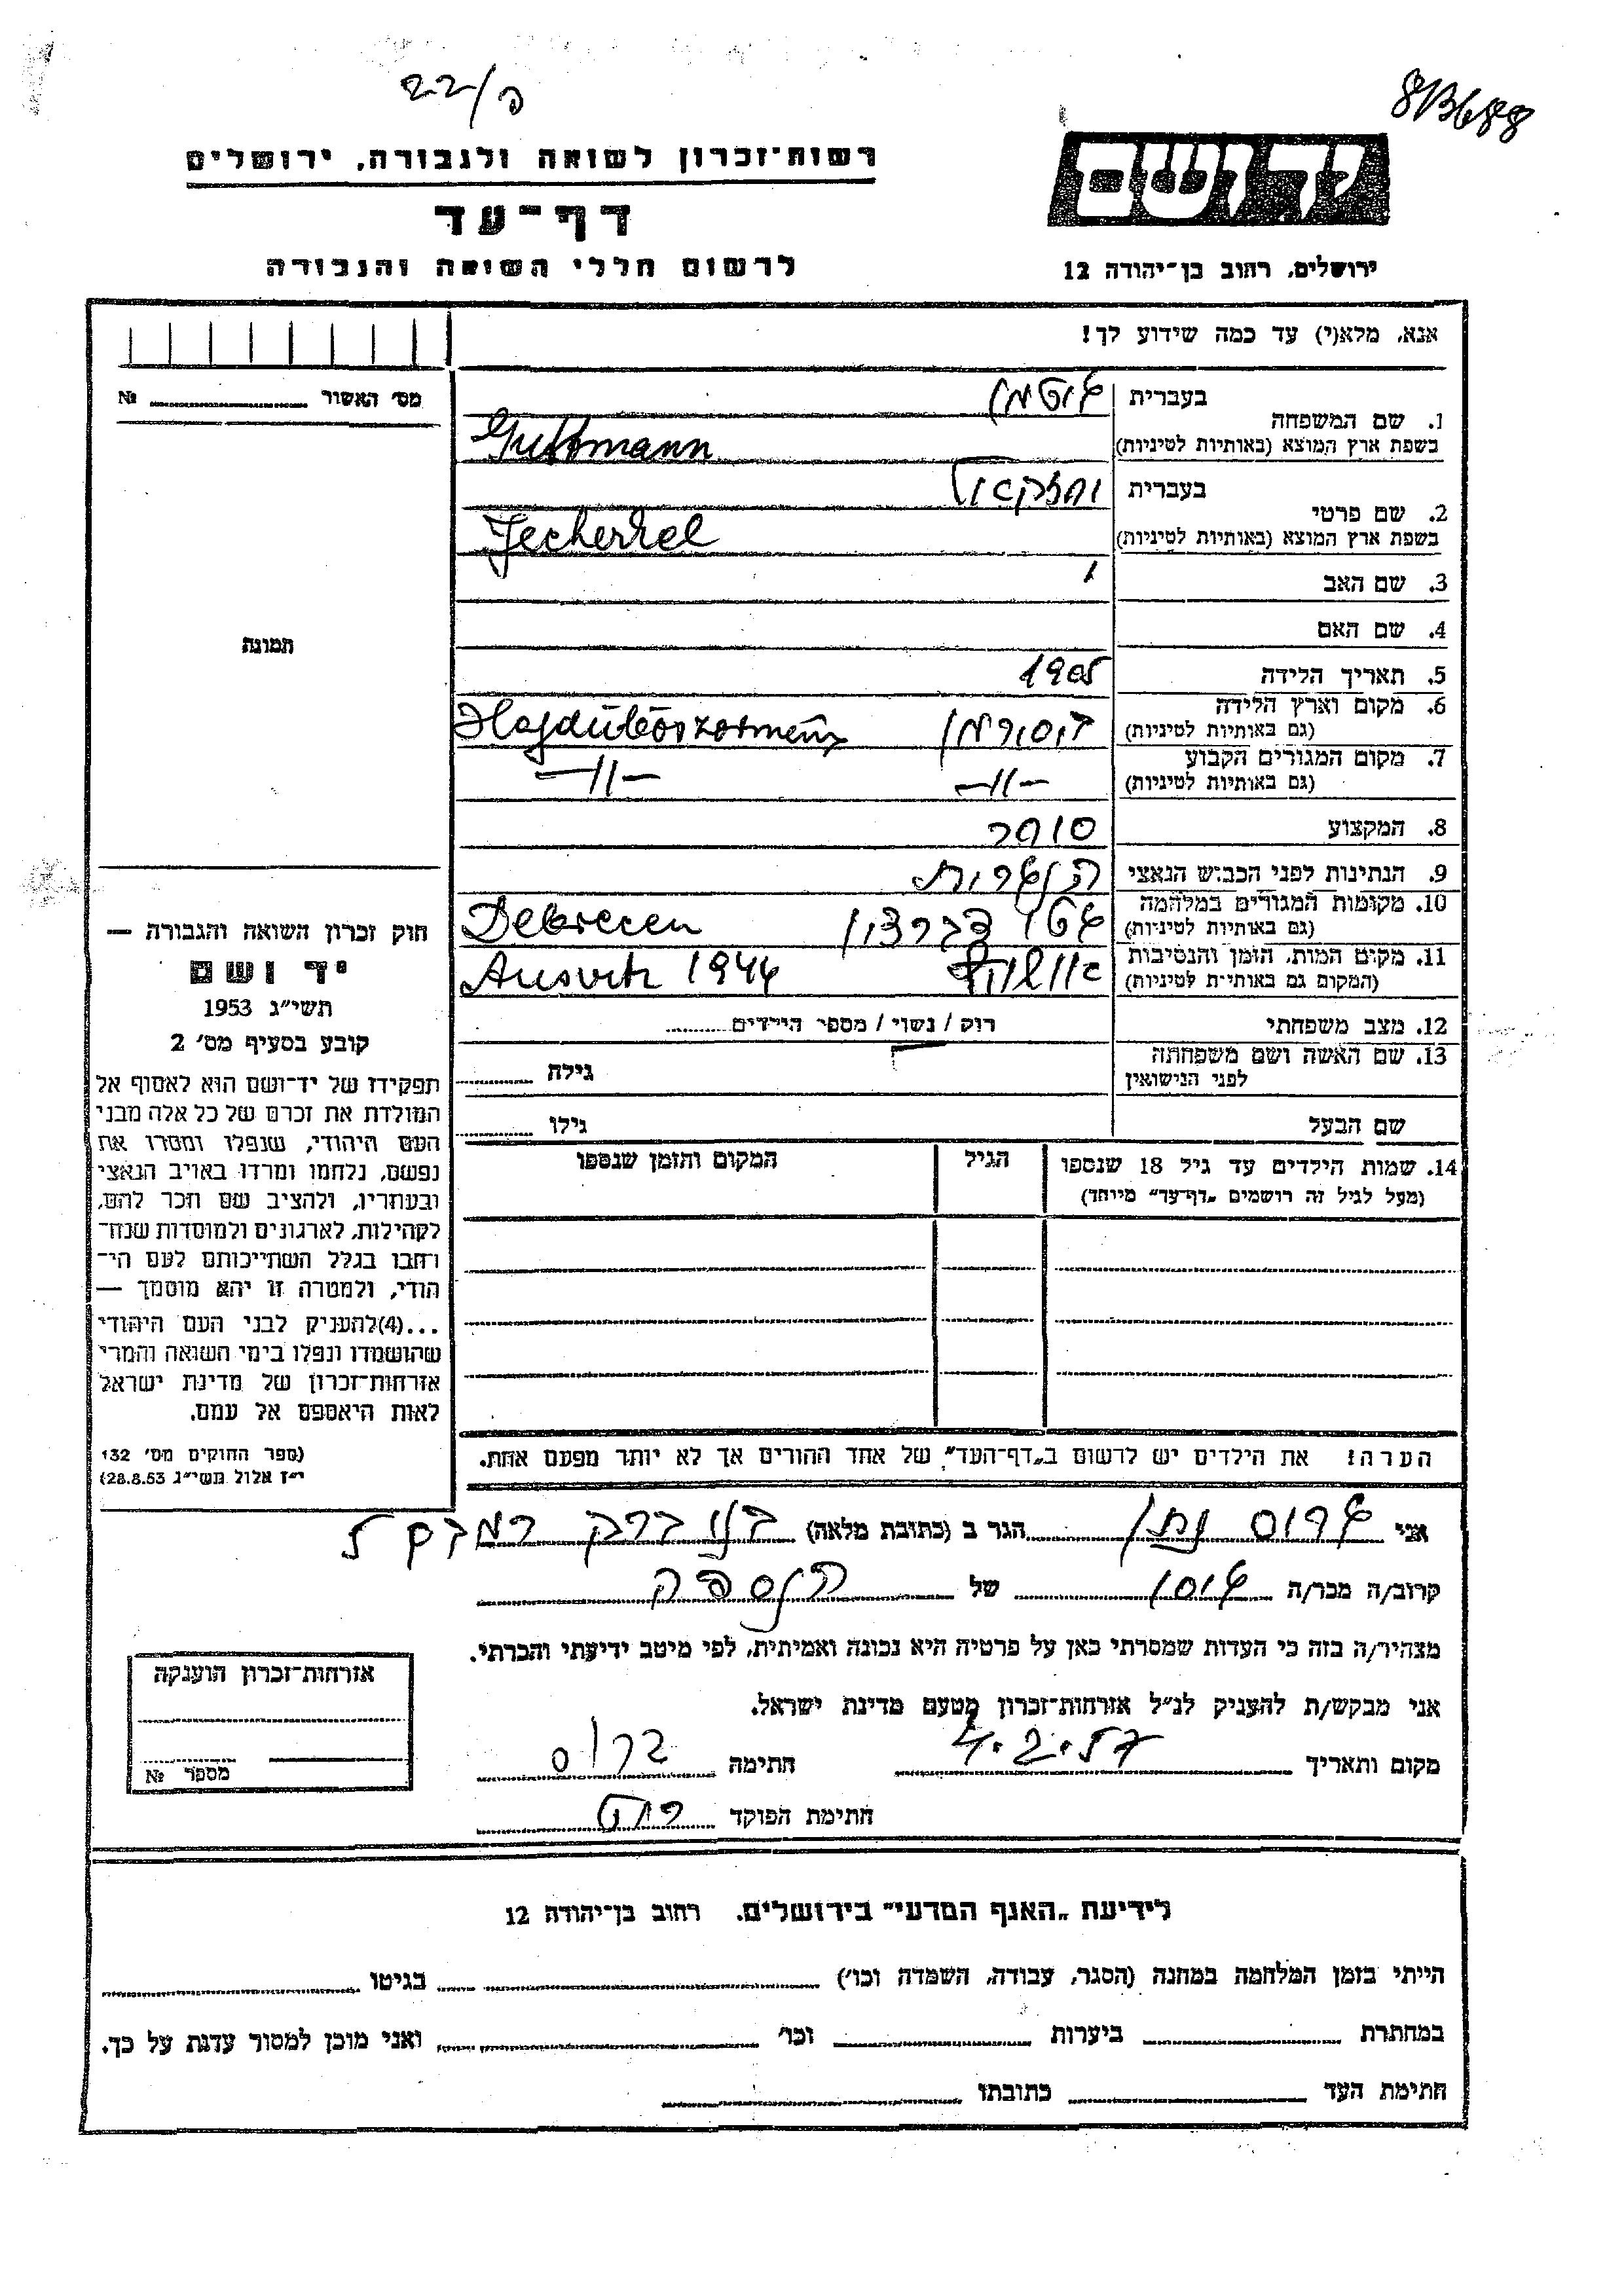 22/פ
8B688
רשות־זכרון לשואה ולגבורה, ירושלים
דף־עד
לרשום חללי השואה והגבורה
יד ושם
ירושלים, רחוב בן־יהודה 12
אנא, מלא(י) עד כמה שידוע לך!
מס׳ האשור № 
1. שם המשפחה
בעברית גוטמן
בשפת ארץ המוצא (באותיות לטיניות) Guttmann
2. שם פרטי
בעברית יחזקאל
בשפת ארץ המוצא (באותיות לטיניות) Jecheskel
3. שם האב
4. שם האם
5. תאריך הלידה 1905
6. מקום וארץ הלידה
(גם באותיות לטיניות) Hajduböszörmény
7. מקום המגורים הקבוע
(גם באותיות לטיניות) -"- -"-
8. המקצוע סוחר
9. הנתינות לפני הכבוש הנאצי הונגרית
10. מקומות המגורים במלחמה
(גם באותיות לטיניות) גטו דברצון Debrecen
11. מקום המות, הזמן והנסיבות
(המקום גם באותיות לטיניות) אושויץ Ausvitz 1944
12. מצב משפחתי רוק / נשוי / מספר הילדים
13. שם האשה ושם משפחתה
לפני הנישואין גילה
שם הבעל גילו
14. שמות הילדים עד גיל 18 שנספו
(מעל לגיל זה רושמים „דף־עד" מייחד)
הגיל
המקום והזמן שנספו
הערה! את הילדים יש לרשום ב„דף־העד", של אחד ההורים אך לא יותר מפעם אחת.
תמונה
חוק זכרון השואה והגבורה —
יד ושם
תשי״ג 1953
קובע בסעיף מס׳ 2
תפקידו של יד־ושם הוא לאסוף אל
המולדת את זכרם של כל אלה מבני
העם היהודי, שנפלו ומסרו את
נפשם, נלחמו ומרדו באויב הנאצי
ובעוזריו, ולהציב שם וזכר להם,
לקהילות, לארגונים ולמוסדות שנח־
רחבו בגלל השתייכותם לעם הי־
הודי, ולמטרה זו יהא מוסמך —
...(4)להעניק לבני העם היהודי
שהושמדו ונפלו בימי השואה והמרי
אזרחות־זכרון של מדינת ישראל
לאות היאספם אל עמם.
(ספר החוקים מס׳ 132
י״ז אלול תשי״ג 28.8.53)
אני גרוס נתן הגר ב (כתובת מלאה) בני ברק
קרוב/ה מכר/ה של
מצהיר/ה בזה כי העדות שמסרתי כאן על פרטיה היא נכונה ואמיתית, לפי מיטב ידיעתי והכרתי.
אני מבקש/ת להעניק לנ״ל אזרחות־זכרון מטעם מדינת ישראל.
מקום ותאריך 4.2.57 חתימה גרוס
חתימת הפוקד
אזרחות־זכרון הוענקה
מספר №
לידיעת „האגף המדעי" בירושלים. רחוב בן־יהודה 12
הייתי בזמן המלחמה במחנה (הסגר, עבודה, השמדה וכו׳) בגיטו
במחתרת ביערות וכו׳ ואני מוכן למסור עדות על כך.
חתימת העד כתובתו